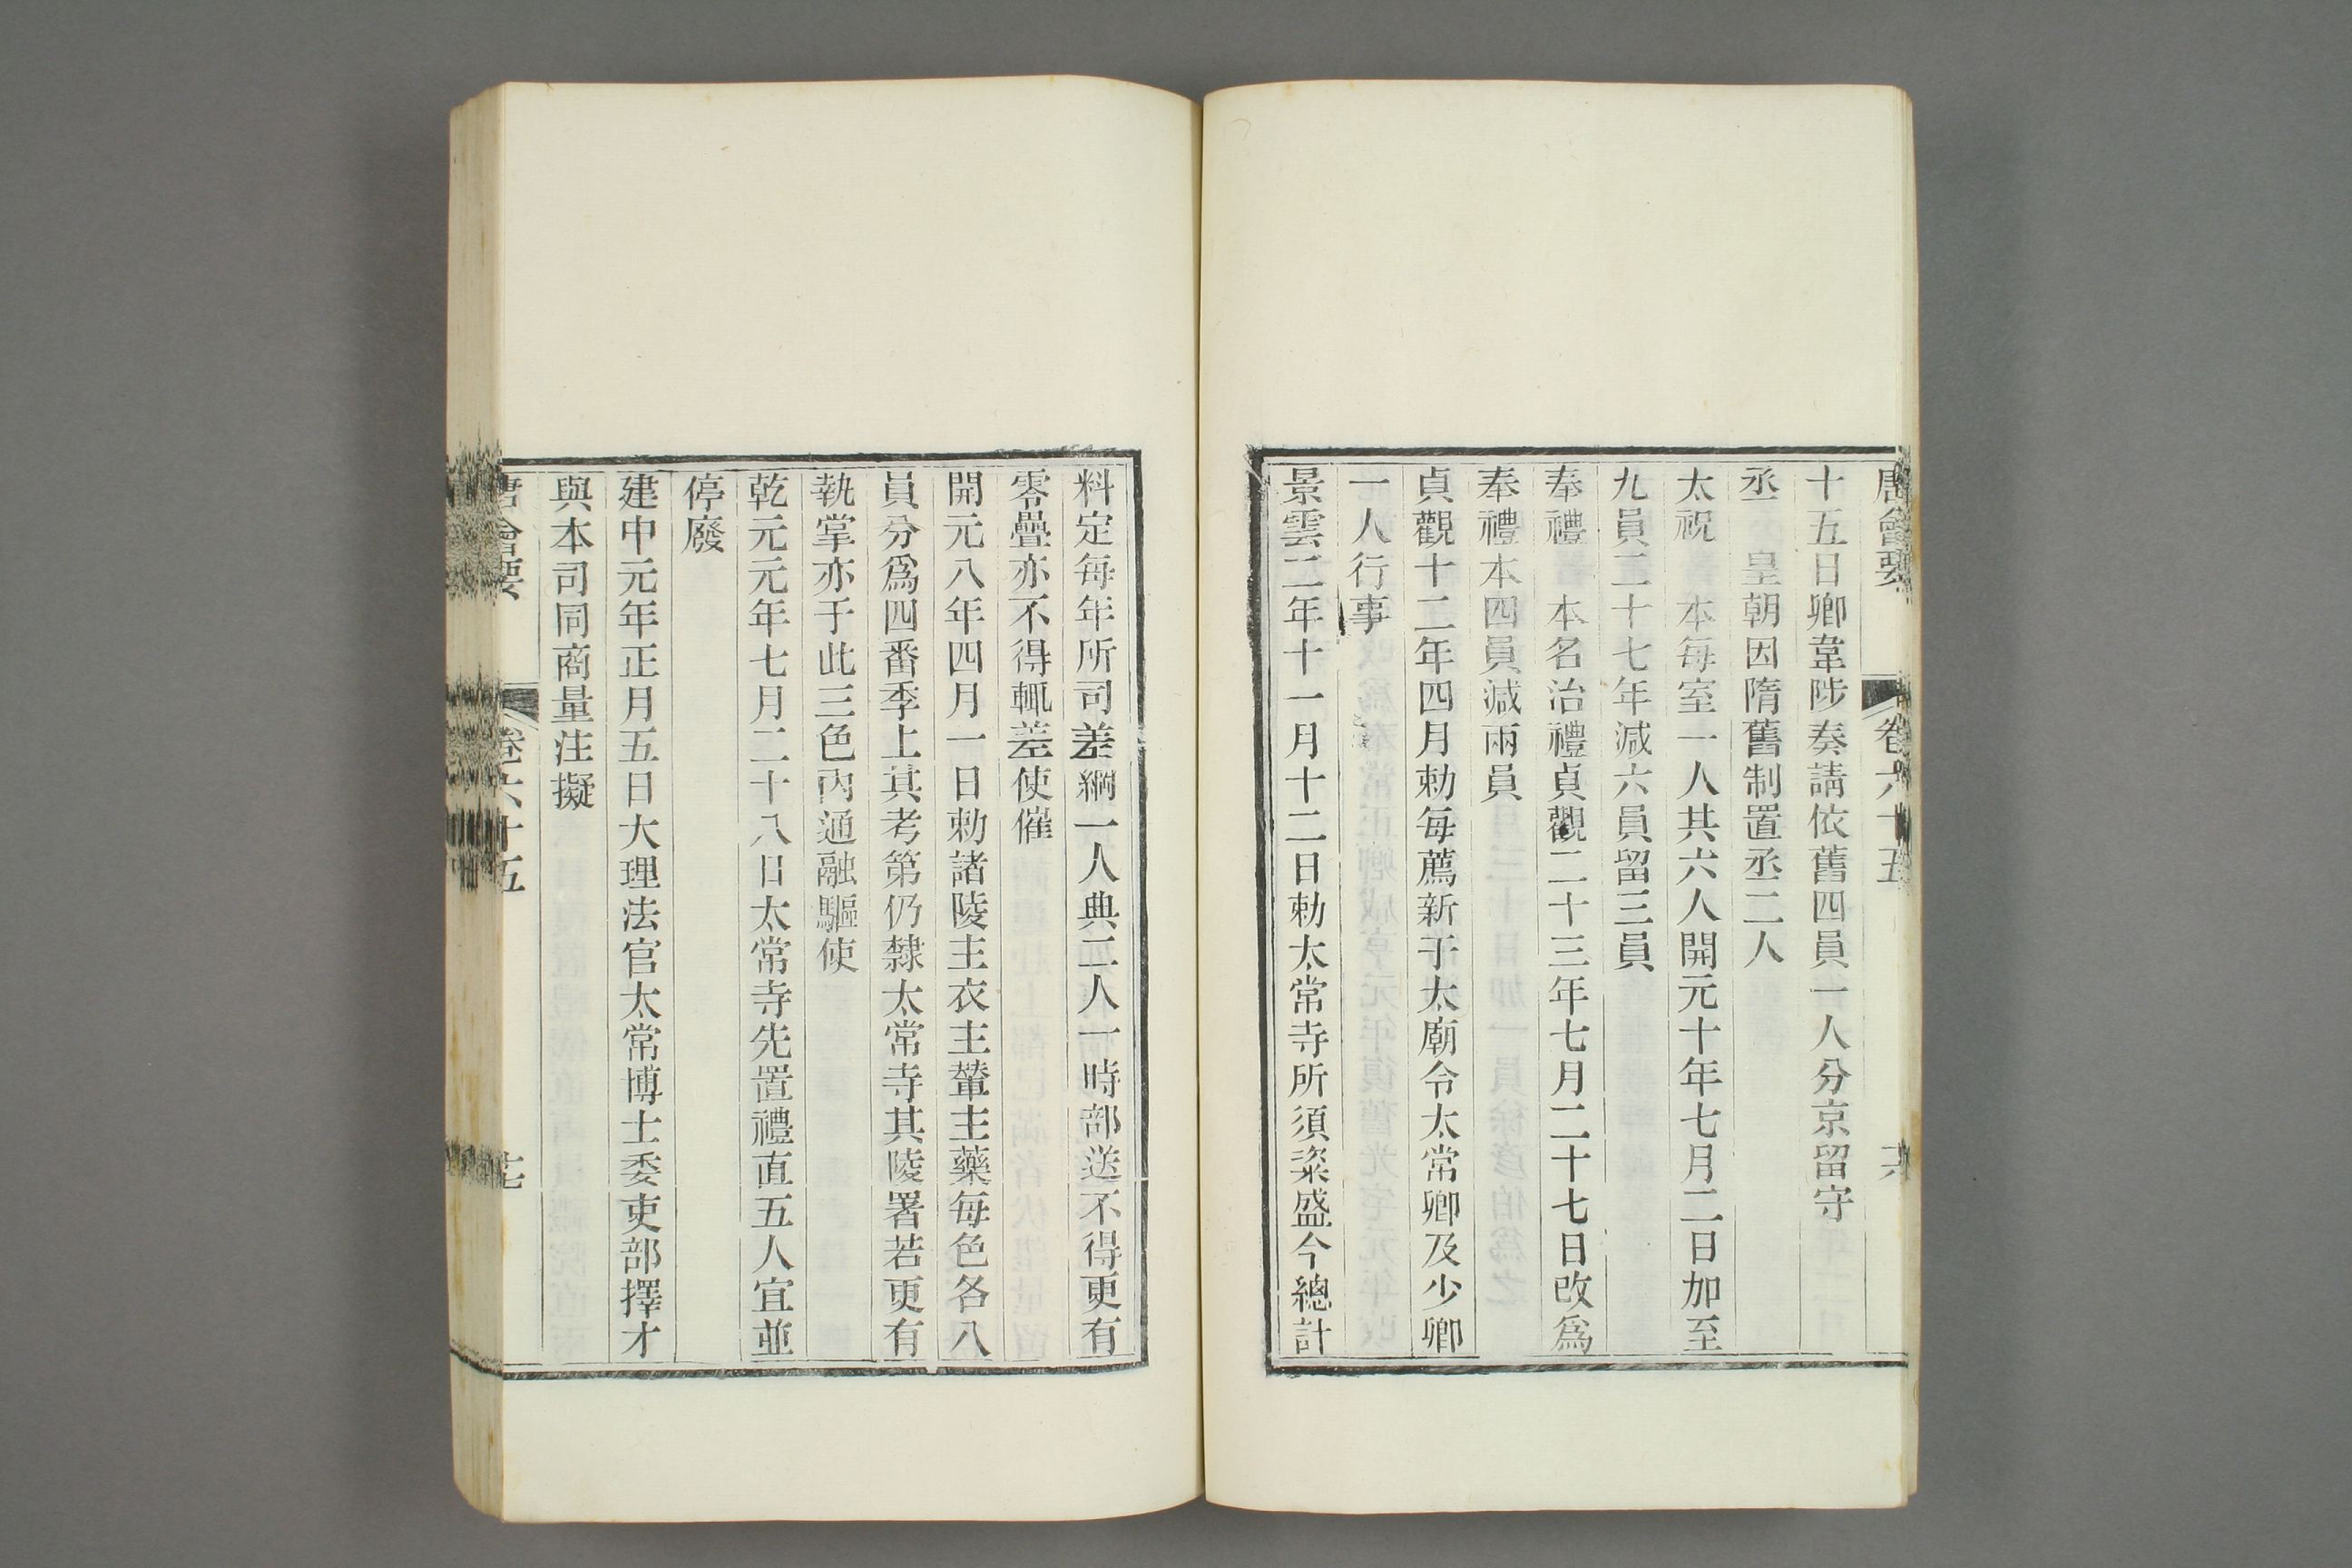 唐會要 卷六十五 十六
十五日卿韋陟奏請依舊四員一人分京留守
丞 皇朝因隋舊制置丞二人
太祝 本每室一人共六人開元十年七月二日加至
九員二十七年減六員留三員
奉禮 本名治禮貞觀二十三年七月二十七日改爲
奉禮本四員減兩員
貞觀十二年四月勅每薦新于太廟令太常卿及少卿
一人行事
景雲二年十一月十二日勅太常寺所須粢盛今總計
料定每年所司差綱一人典二人一時部送不得更有
零疊亦不得輒差使催
開元八年四月一日勅諸陵主衣主輦主藥每色各八
員分爲四番季上其考第仍隸太常寺其陵署若更有
執掌亦于此三色內通融驅使
乾元元年七月二十八日太常寺先置禮直五人宜並
停廢
建中元年正月五日大理法官太常博士委吏部擇才
與本司同商量注擬
唐會要 卷六十五 十七